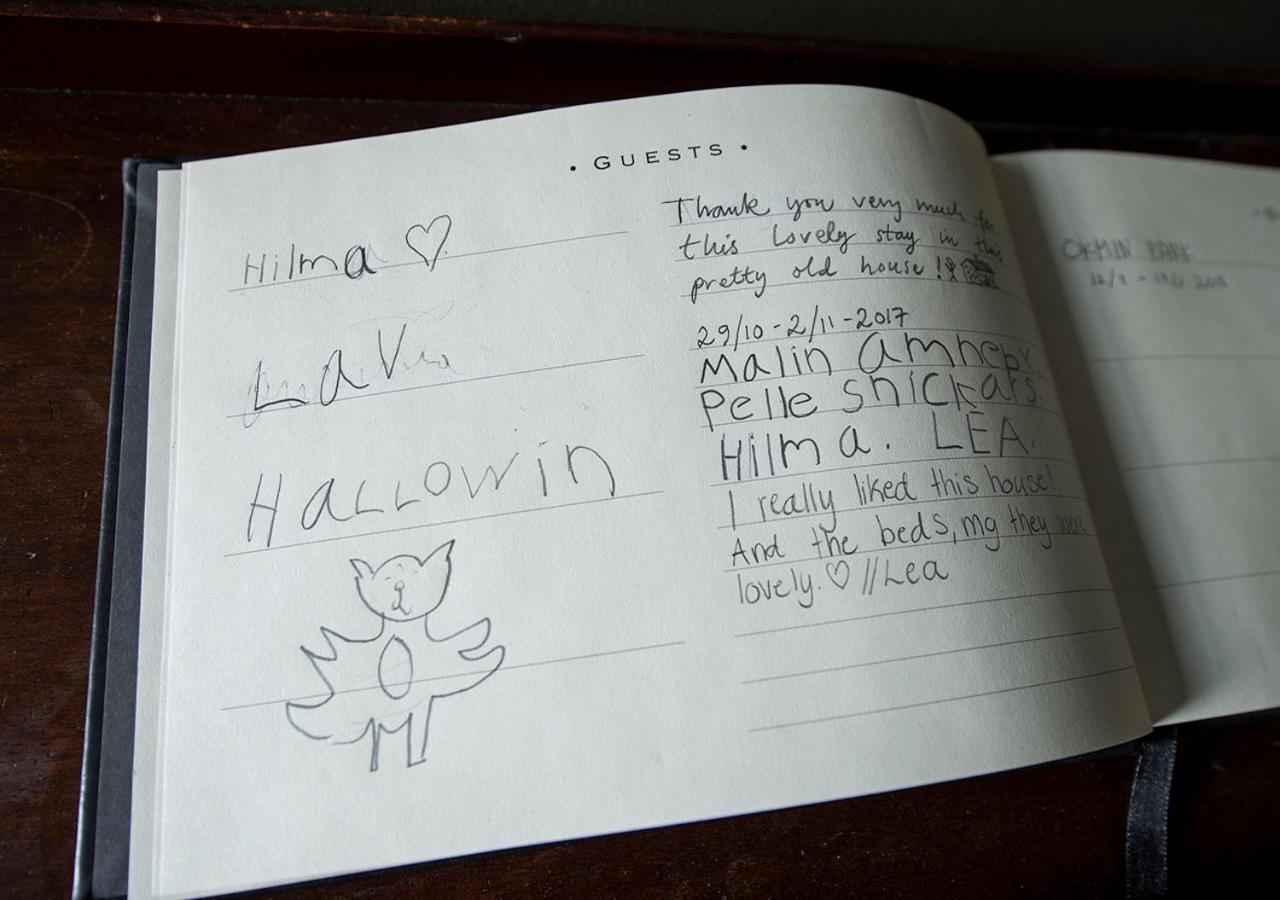 • GUESTS •
Hilma ♡
LaV
HaLLOWin
Thank you very much for
this Lovely stay in this
pretty old house!
29/10 - 2/11 - 2017
Malin
Pelle snickars.
Hilma. LEA.
I really liked this house!
And the beds, mg they were
lovely. ♡ //Lea
OKMIN PARK